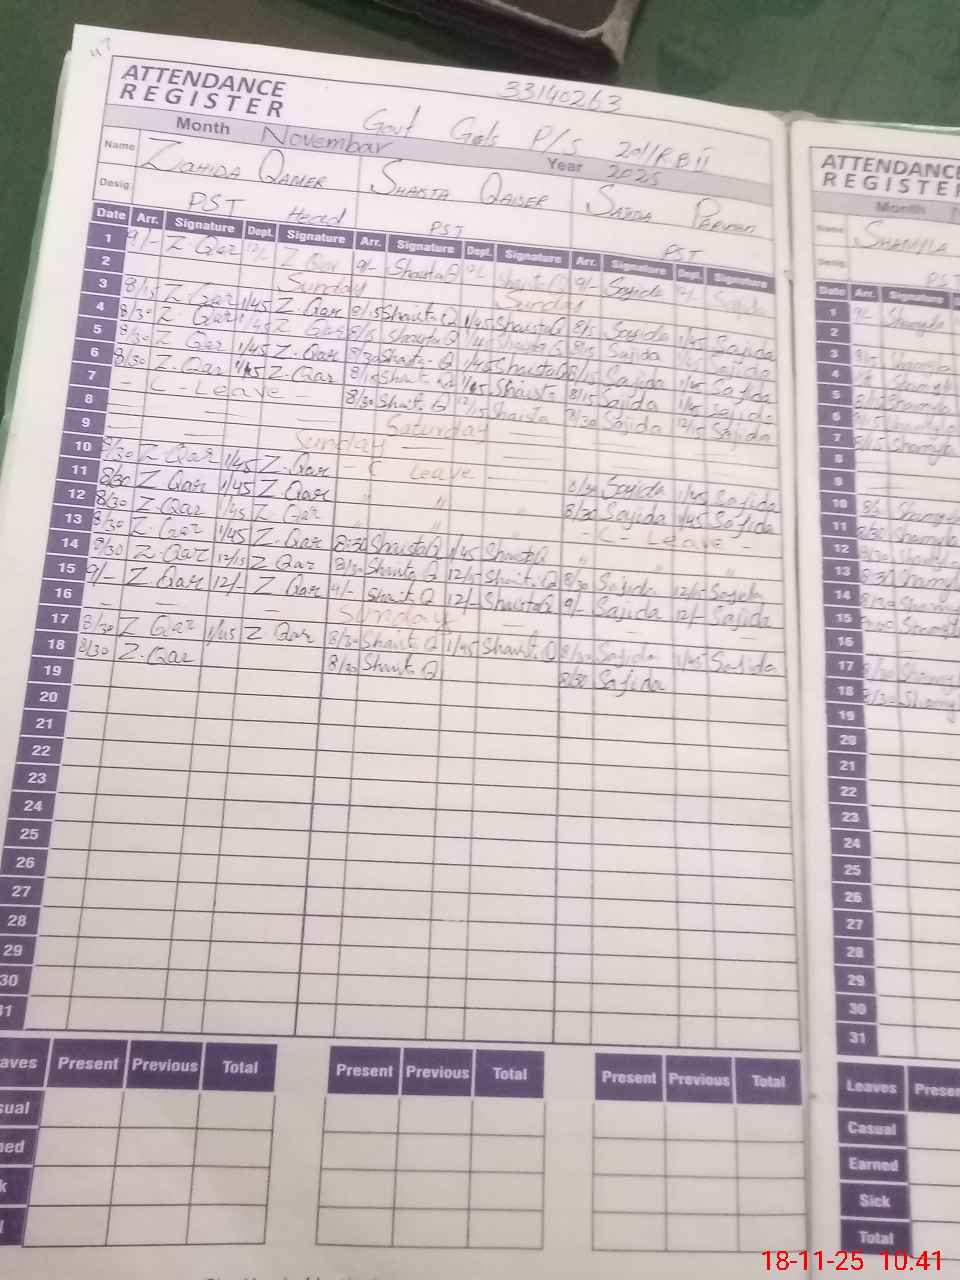 ATTENDANCE REGISTER
33140263
Govt Gels P/S 201/RB II
Month Novembar Year 2025
Name ZAHIDA QAMER SHAISTA QAISER SAJIDA PARVEEN
Desig. PST Head PST PST
Date Arr. Signature Dept. Signature Arr. Signature Dept. Signature Arr. Signature Dept. Signature
1 9/- Z.Qar 12/- Z Qar 9/- Shaista Q 12/- Shaista Q 9/- Sajida 12/- Sajida
2 Sunday Sunday
3 8/15 Z Qar 1/45 Z.Qar 8/15 Shaista Q 1/45 Shaista Q 8/15 Sajida 1/45 Sajida
4 8/30 Z. Qar 1/45 Z Qar 8/15 Shaista Q 1/45 Shaista Q 8/15 Sajida 1/45 Sajida
5 8/30 Z Qar 1/45 Z.Qar 8/30 Shaista Q 1/45 Shaista Q 8/15 Sajida 1/45 Sajida
6 8/30 Z.Qar 1/45 Z.Qar 8/15 Shaista Q 1/45 Shaista 8/15 Sajida 1/45 Sajida
7 - C - Leave - 8/30 Shaista Q 12/15 Shaista 8/30 Sajida 12/15 Sajida
8 Saturday
9 Sunday
10 8/30 Z.Qar 1/45 Z.Qar - C Leave 8/30 Sajida 1/45 Sajida
11 8/30 Z.Qar 1/45 Z Qar " " " 8/30 Sajida 1/45 Sajida
12 8/30 Z.Qar 1/45 Z Qar - C - Leave -
13 8/30 Z.Qar 1/45 Z.Qar 8:30 Shaista Q 1/45 Shaista Q " " "
14 8/30 Z.Qar 12/15 Z Qar 8/30 Shaista Q 12/15 Shaista Q 8/30 Sajida 12/15 Sajida
15 9/- Z.Qar 12/- Z Qar 9/- Shaista Q 12/- Shaista Q 9/- Sajida 12/- Sajida
16 Sunday
17 8/30 Z Qar 1/45 Z Qar 8/30 Shaista Q 1/45 Shaista Q 8/30 Sajida 1/45 Sajida
18 8/30 Z.Qar 8/30 Shaista Q 8/30 Sajida
19
20
21
22
23
24
25
26
27
28
29
30
31
Present Previous Total Present Previous Total Present Previous Total
ATTENDANCE
REGISTER
Month
Name SHAMYLA
Desig. PST
Date Arr. Signature
1 9/- Shamyla
2
3 8/15 Shamyla
4 Shamyla
5 Shamyla
6 8/15 Shamyla
7 8/15 Shamyla
8
9
10 Shamyla
11 8/30 Shamyla
12 8/30 Shamyla
13 8:30 Shamyla
14 8/30 Shamyla
15 9:00 Shamyla
16
17 8/30 Shamyla
18 8/30 Shamyla
19
20
21
22
23
24
25
26
27
28
29
30
31
Leaves
Casual
Earned
Sick
Total
18-11-25 10.41